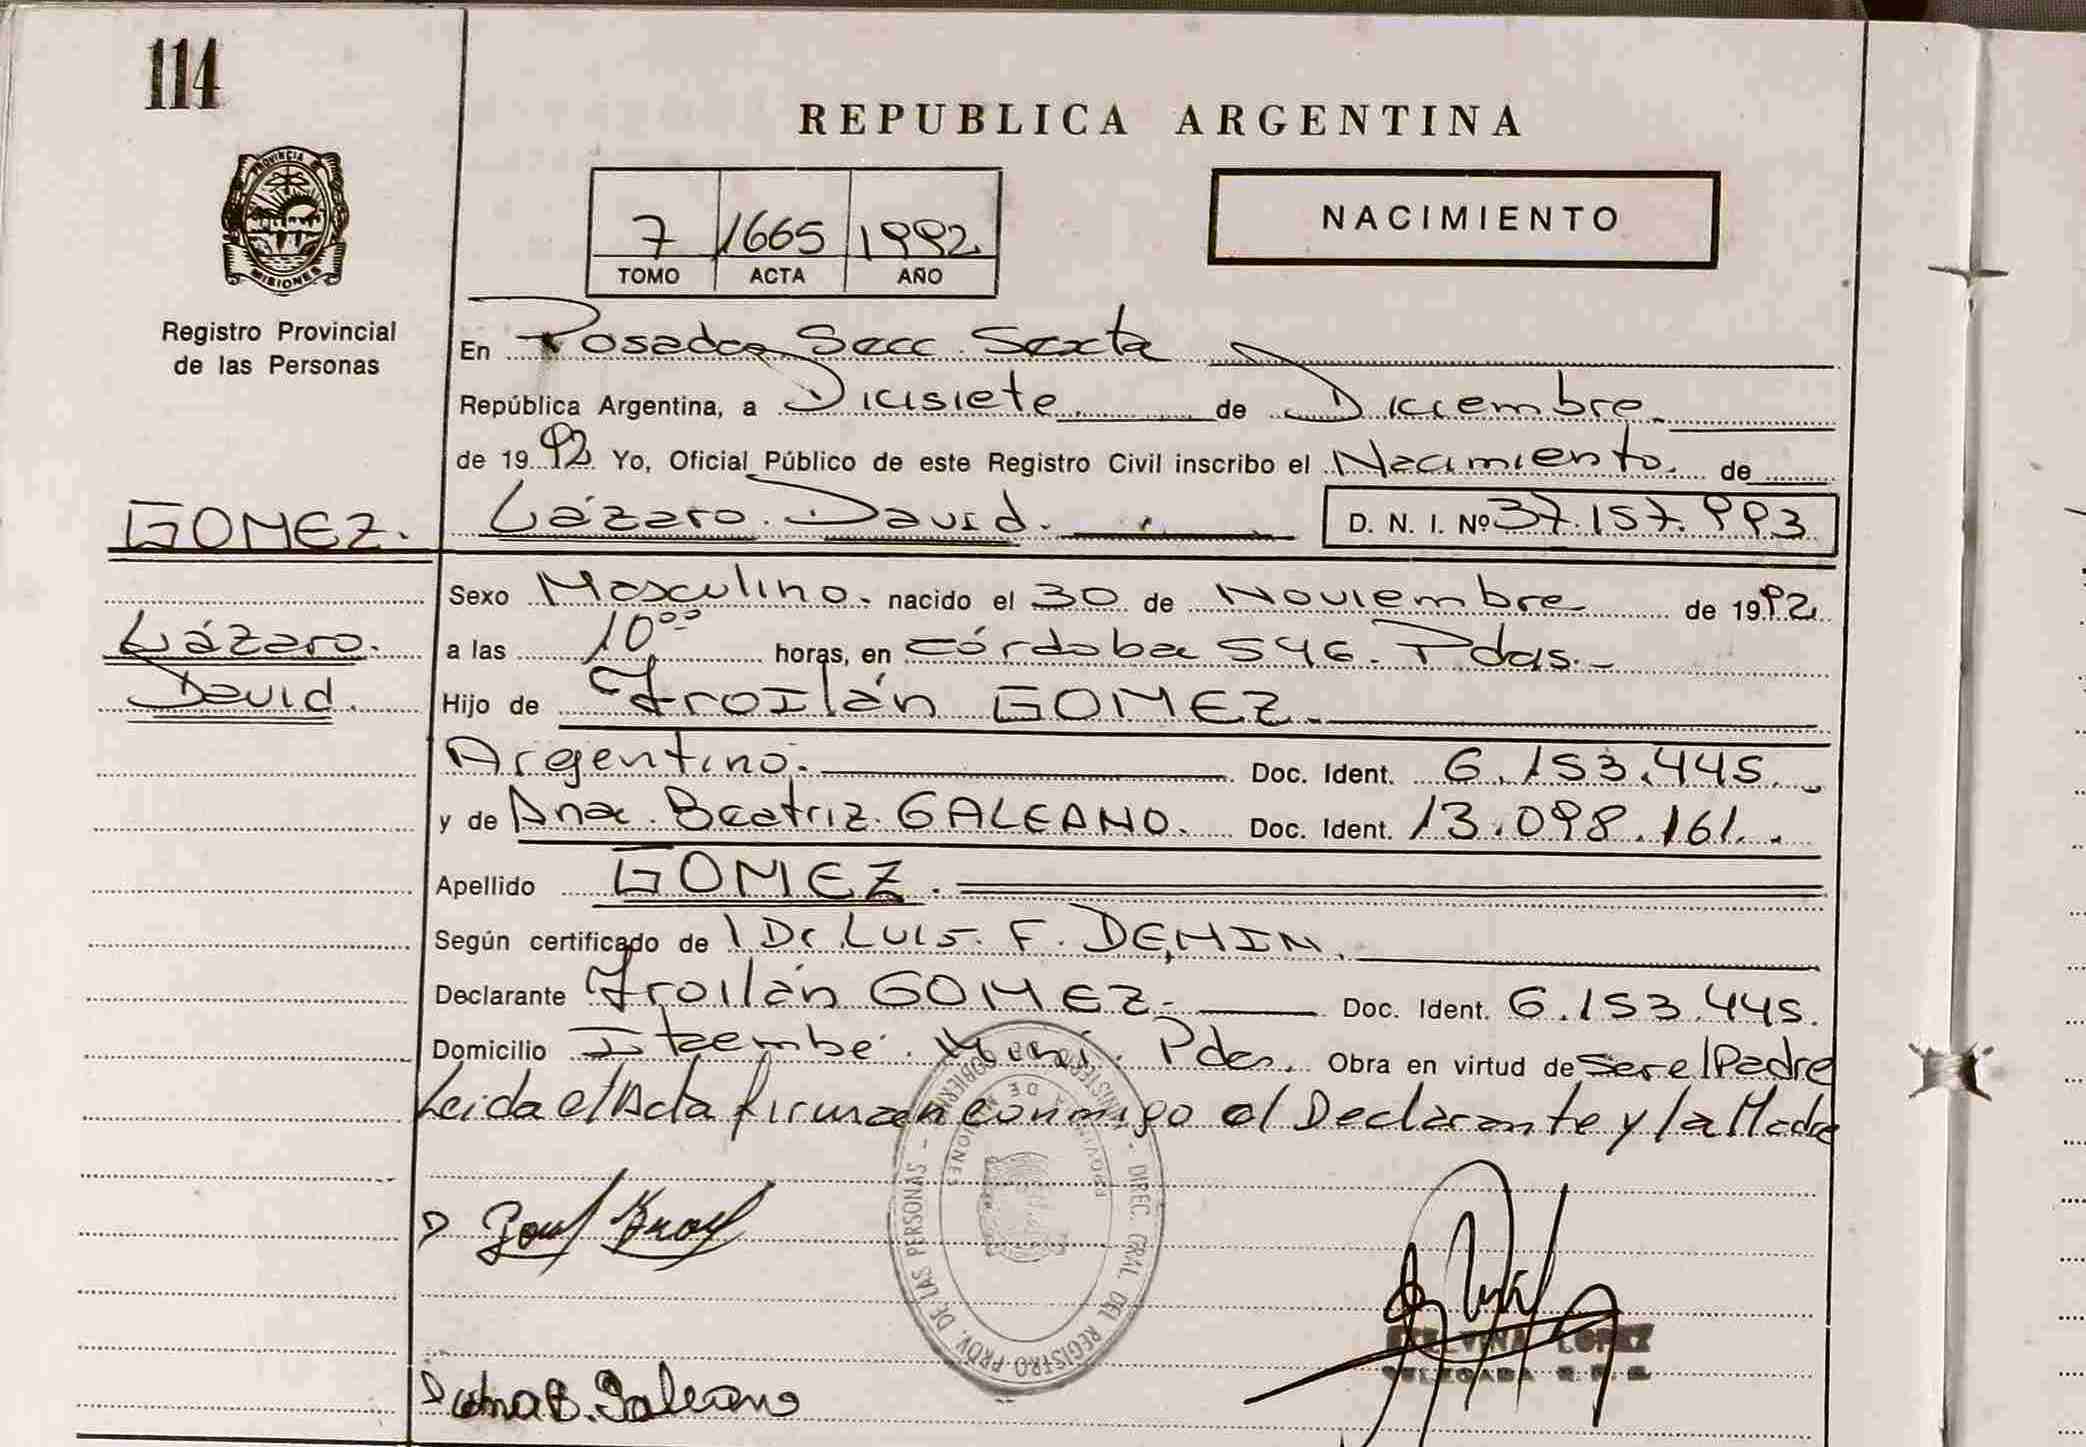 114
REPUBLICA ARGENTINA
PROVINCIA
MISIONES
Registro Provincial
de las Personas
7 1665 1992
TOMO ACTA AÑO
NACIMIENTO
En Posadas Secc. Sexta
República Argentina, a Dicisiete de Diciembre
de 1992 Yo, Oficial Público de este Registro Civil inscribo el Nacimiento de
GOMEZ. Lázaro David. D. N. I. Nº 37.157.993
Sexo Masculino. nacido el 30 de Noviembre de 1992
Lázaro. a las 10,00 horas, en Córdoba 546. Pdas.-
David. Hijo de Froilán GOMEZ.
Argentino. Doc. Ident. 6.153.445.
y de Ana Beatriz GALEANO. Doc. Ident. 13.098.161.
Apellido GOMEZ.
Según certificado de Dr. Luis. F. DEMIN.
Declarante Froilán GOMEZ. Doc. Ident. 6.153.445.
Domicilio Itaembé Miní. Pdas. Obra en virtud de ser el Padre
Leida el Acta firman conmigo el Declarante y la Madre
DIREC. GRAL DEL REGISTRO PROV. DE LAS PERSONAS - MINISTERIO GOBIERNO
PROVINCIA DE MISIONES
Ana B. Galeano
LOPEZ
DELEGADA